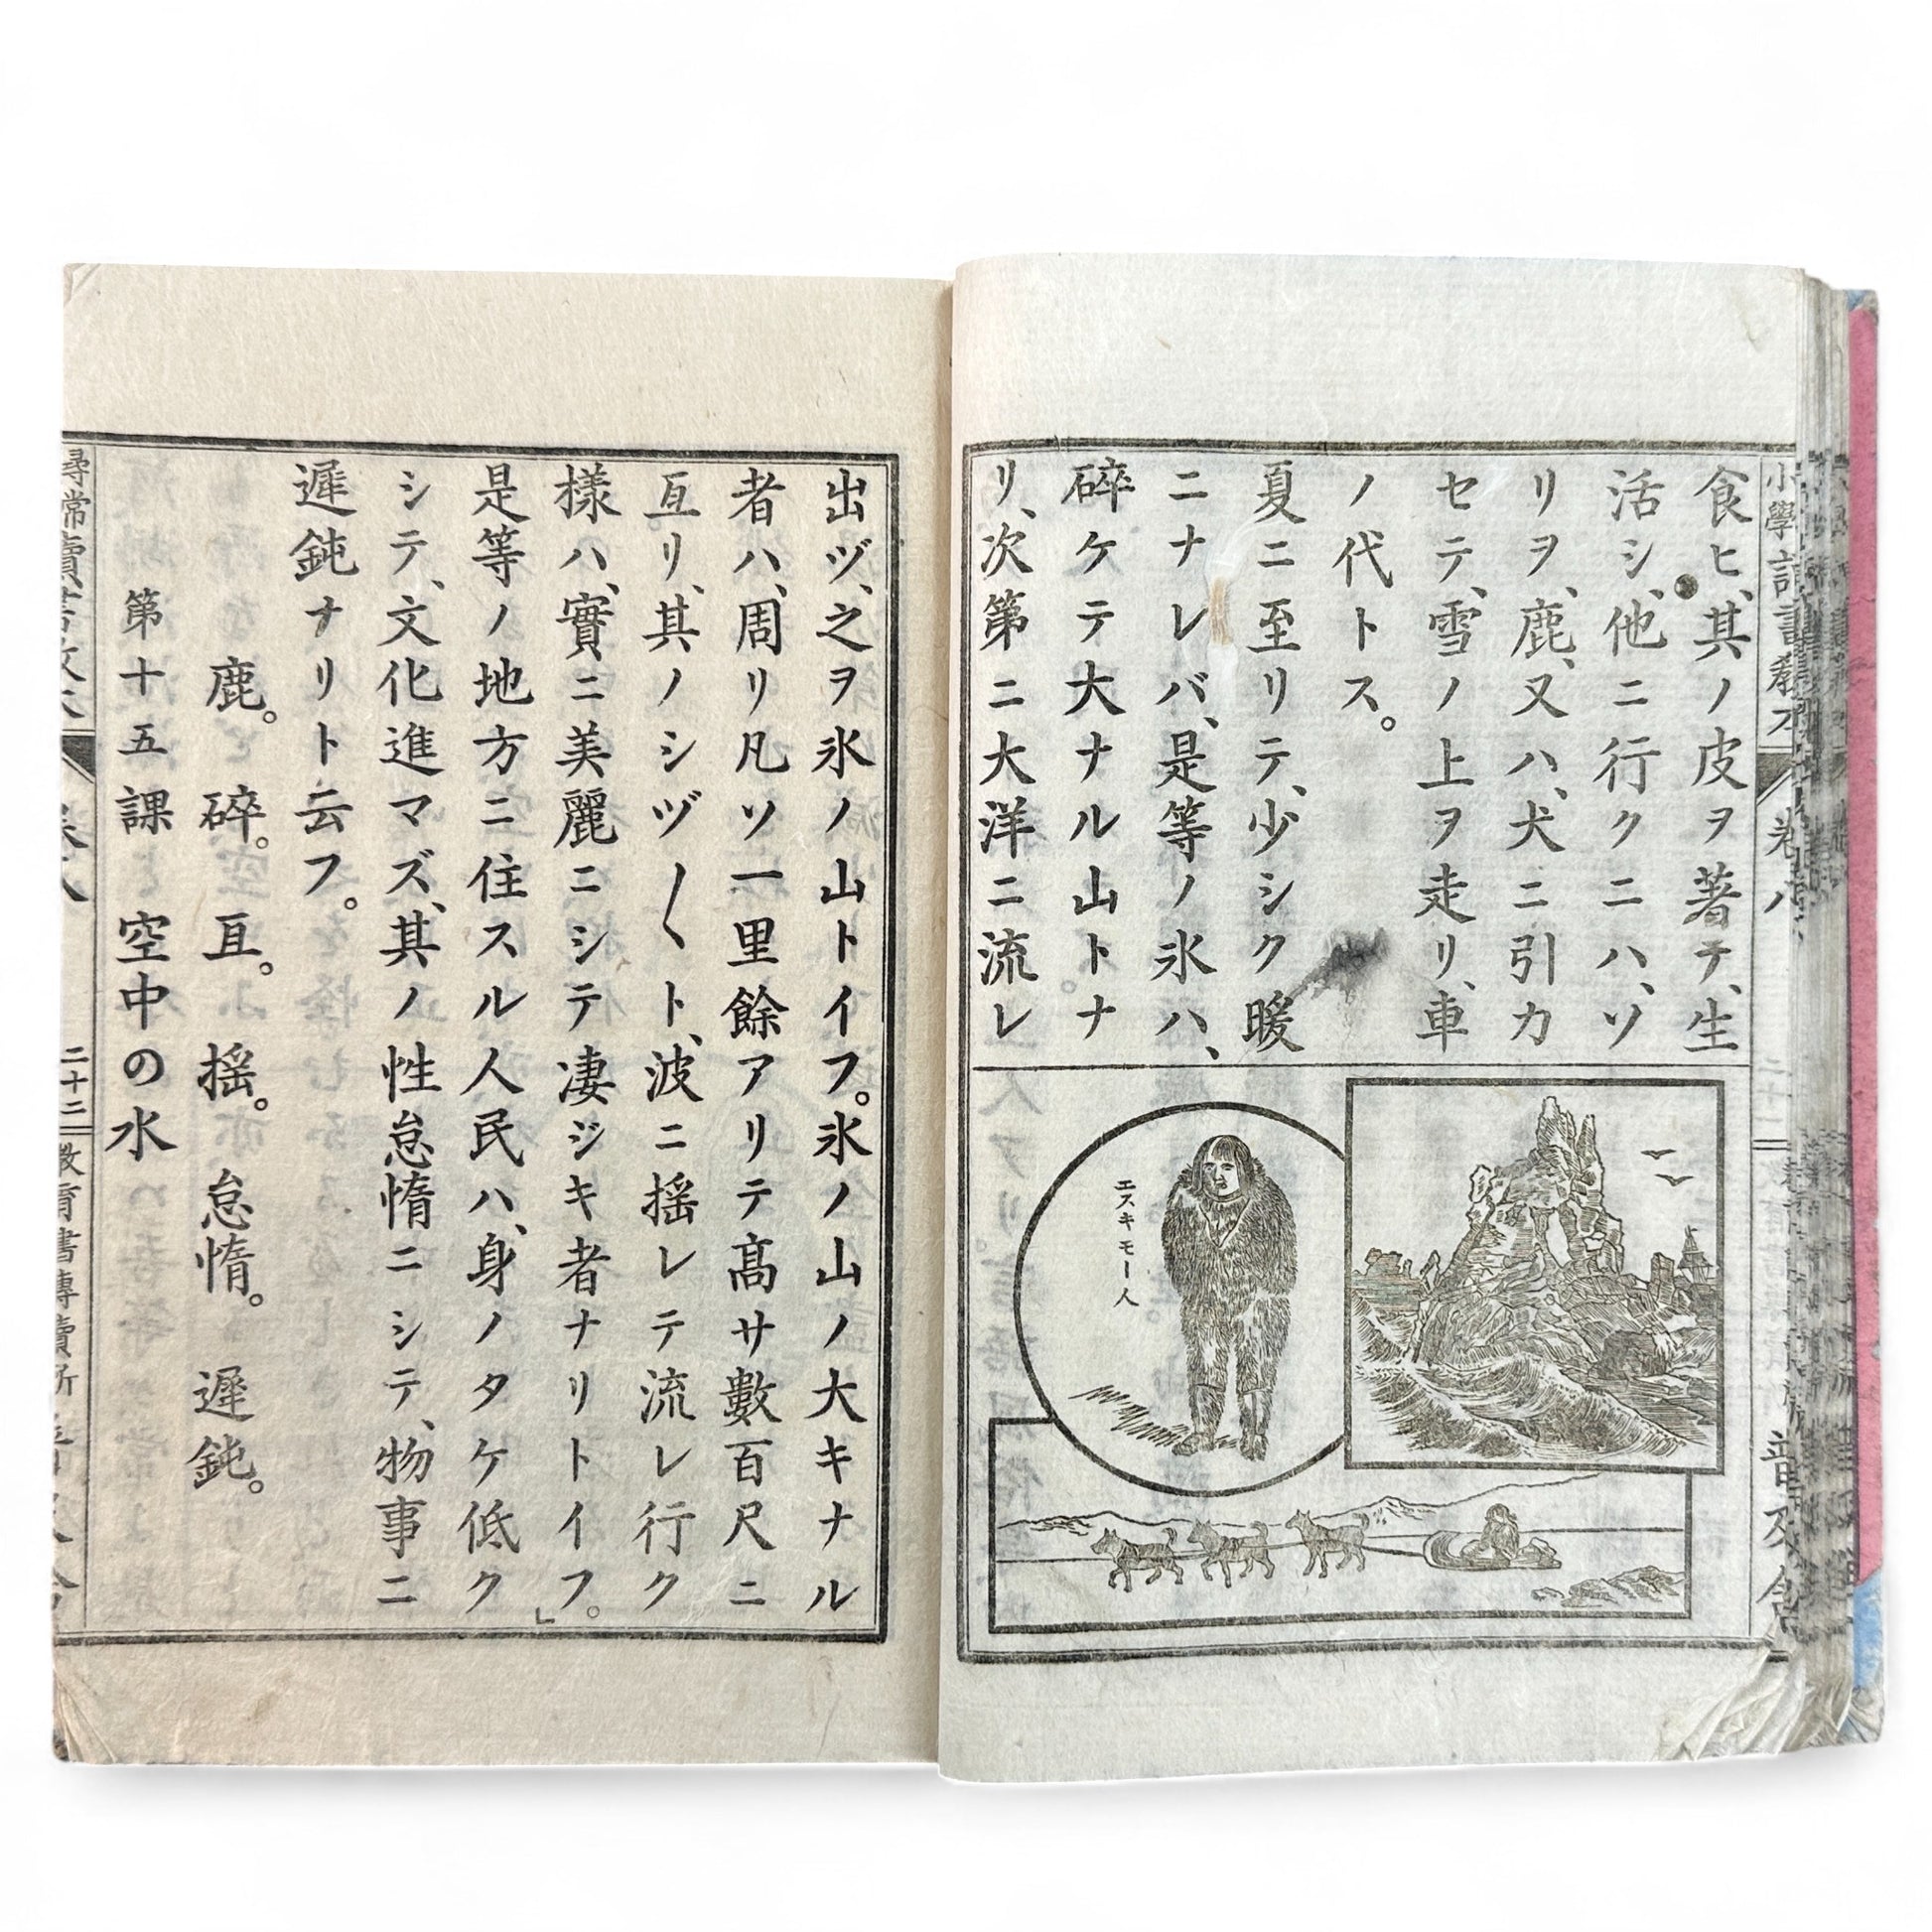 食ヒ、其ノ皮ヲ著テ、生
活シ、他ニ行クニハ、ソ
リヲ、鹿、又ハ、犬ニ引カ
セテ、雪ノ上ヲ走リ、車
ノ代トス。
夏ニ至リテ、少シク暖
ニナレバ、是等ノ氷ハ、
碎ケテ大ナル山トナ
リ、次第ニ大洋ニ流レ
エスキモー人
出ヅ、之ヲ氷ノ山トイフ。氷ノ山ノ大キナル
者ハ、周リ凡ソ一里餘アリテ高サ數百尺ニ
亙リ、其ノシヅ〱ト、波ニ揺レテ流レ行ク
樣ハ、實ニ美麗ニシテ凄ジキ者ナリトイフ。」
是等ノ地方ニ住スル人民ハ、身ノタケ低ク
シテ、文化進マズ、其ノ性怠惰ニシテ、物事ニ
遲鈍ナリト云フ。
鹿。碎。亙。揺。怠惰。遲鈍。
第十五課 空中の水
二十二